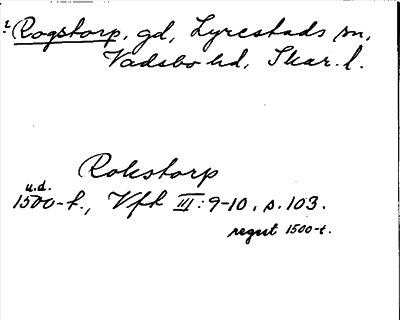 ? Rogstorp, gd, Lyrestads sn,
Vadsbo hd, Skar. l.
Rokstorp
u.d.
1500-t., Vfh III: 9-10, s. 103.
regist 1500-t.